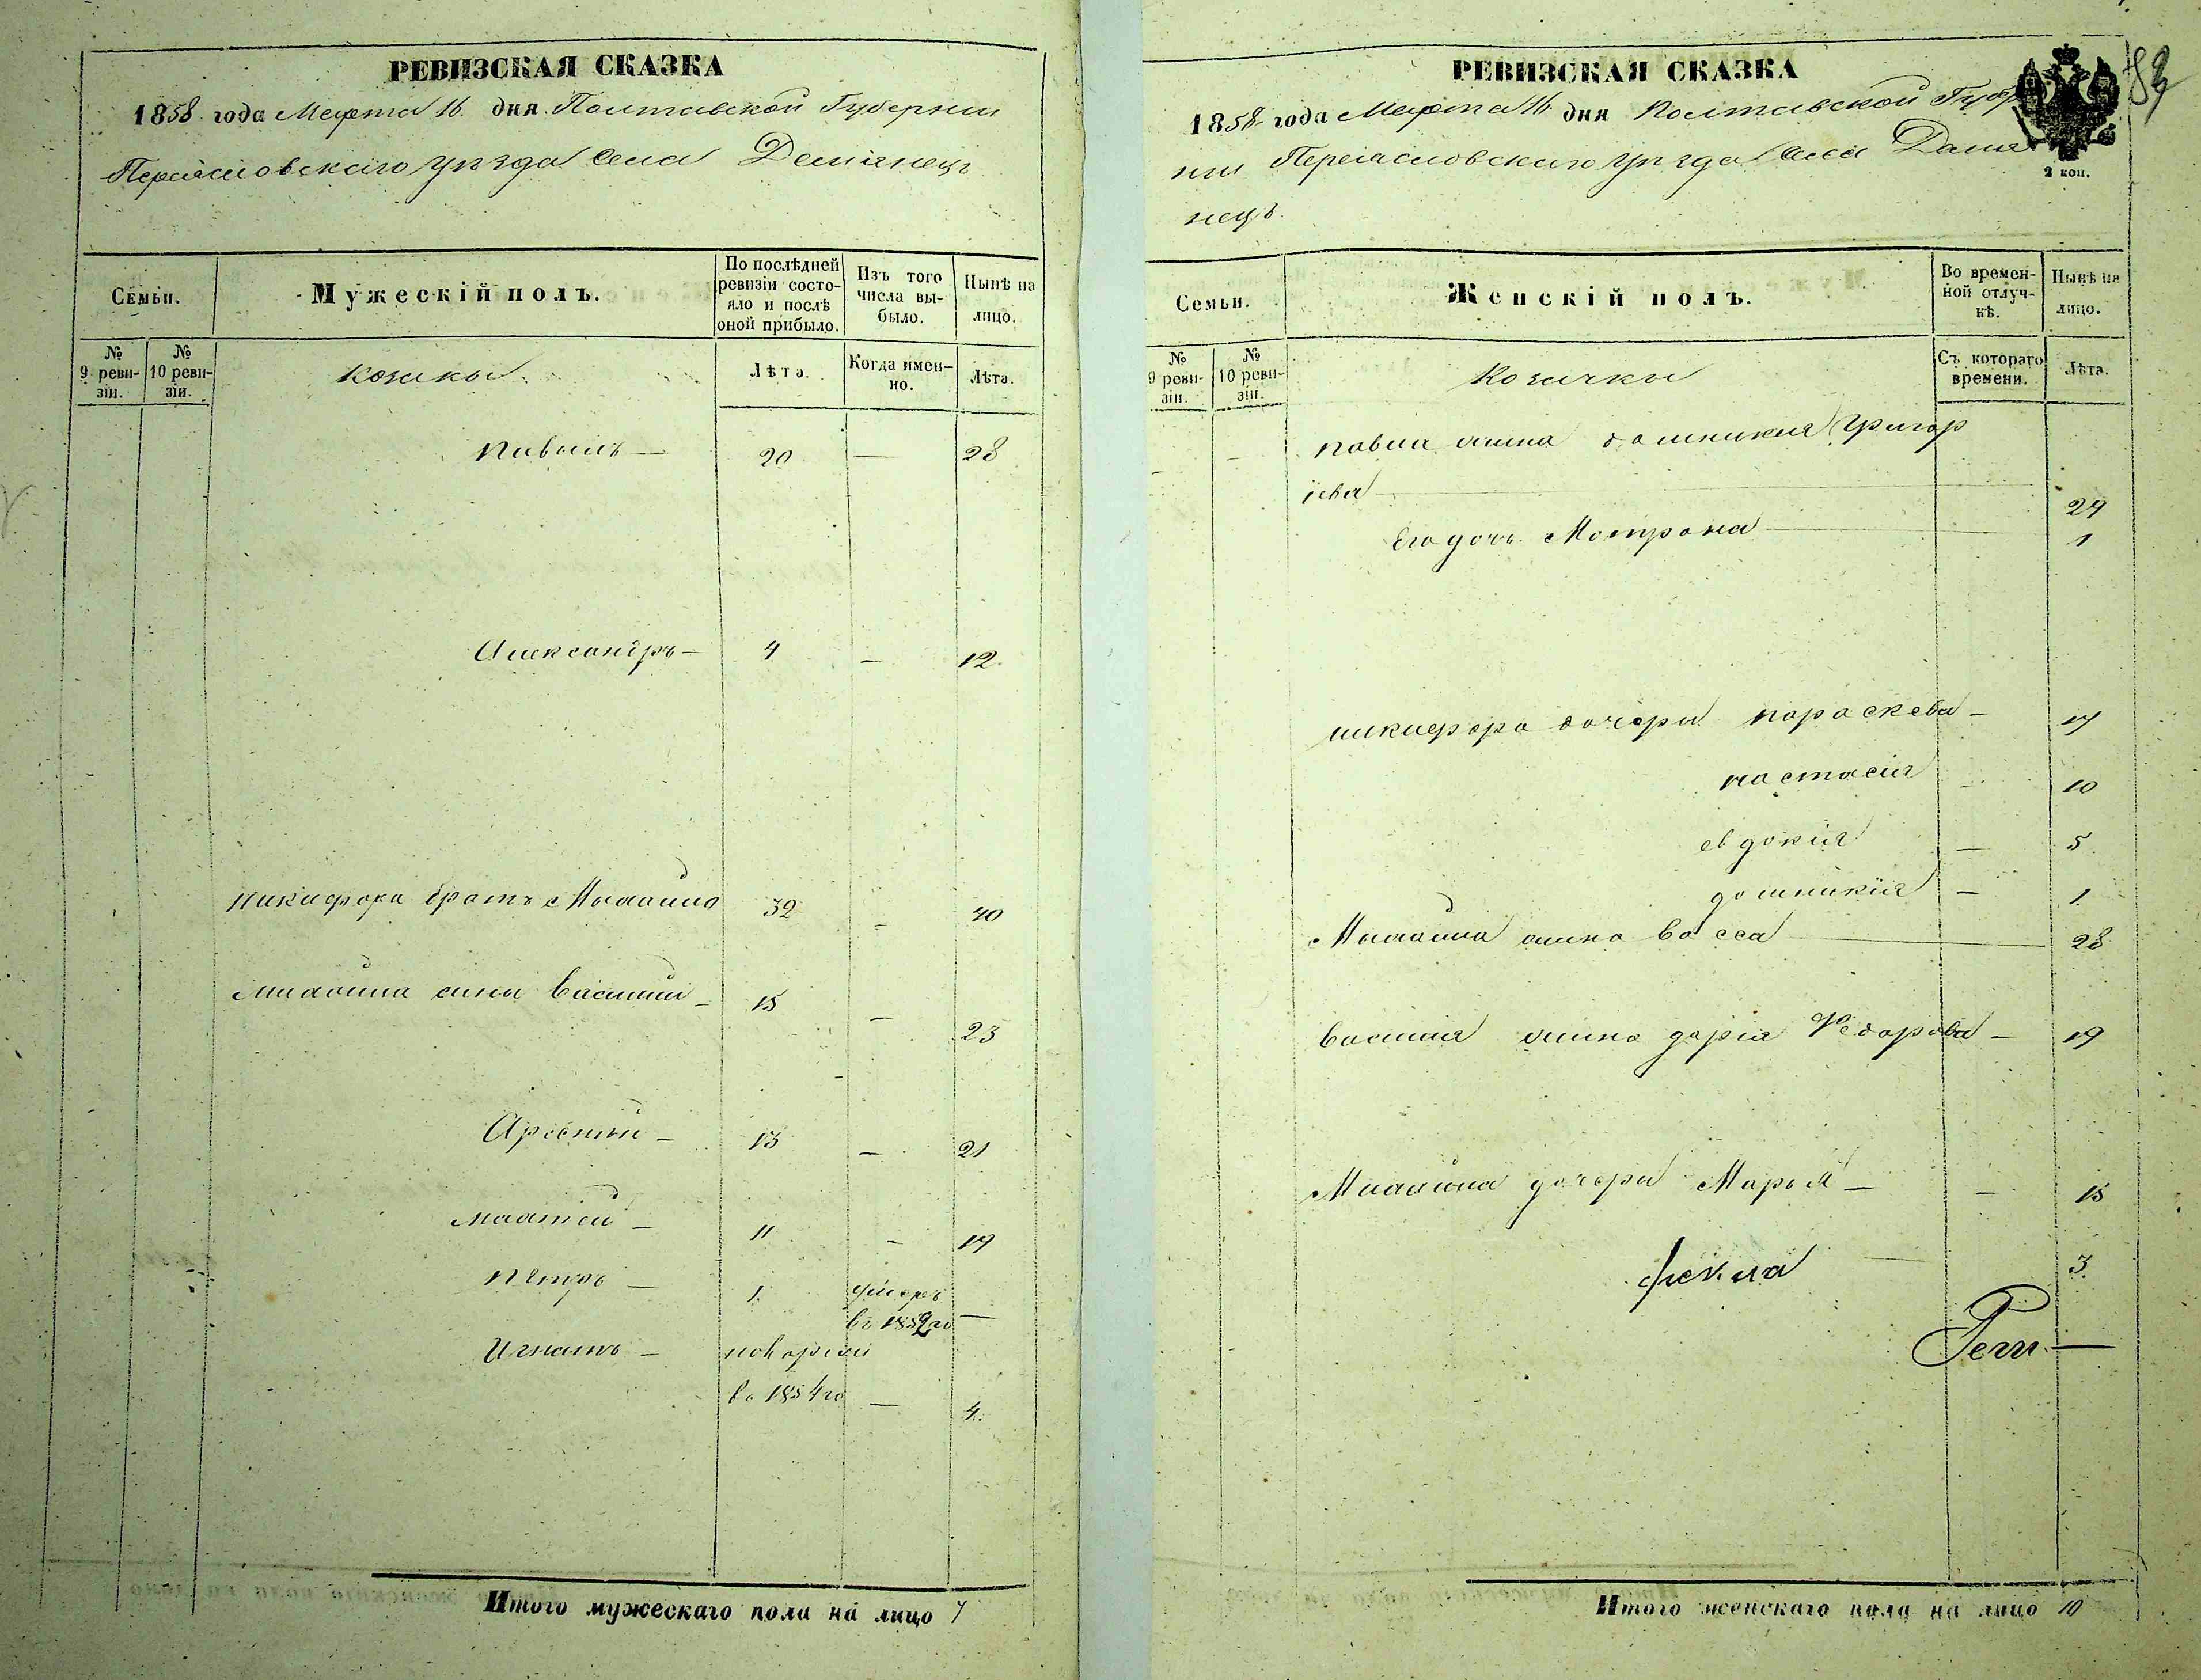 РЕВИЗСКАЯ СКАЗКА
1858 года Марта 16 дня Полтавской Губернии
Переясловскаго уезда села Демянецъ
Семьи.
Мужескій полъ.
По послѣдней ревизіи состояло и послѣ оной прибыло.
Изъ того числа выбыло.
Нынѣ на лицо.
№ 9 ревизіи.
№ 10 ревизіи.
козаки
Лѣта.
Когда именно.
Лѣта.
Павелъ — 20 — 28
Александръ — 4 — 12
Никифора братъ 32 — 40
сины Василий — 15 — 23
Арсений — 13 — 21
Матвей — 11 — 19
Петръ — 1. умеръ
в 1852го —
Игнатъ —
в 1854го — 4.
Итого мужескаго пола на лицо 7
РЕВИЗСКАЯ СКАЗКА
1858 года Марта 16 дня Полтавской Губер
нии Переясловскаго уезда села Демя
нецъ.
2 коп.
Семьи.
Женскій полъ.
Во временной отлучкѣ.
Нынѣ на лицо.
№ 9 ревизіи.
№ 10 ревизіи.
Козачки
Съ котораго времени.
Лѣта.
Павла жина домникия Григор
иева 29
Его дочь Мотрона 1
никифора дочери параскева — 17
настасия — 10
евдокия — 5
домникия — 1
жина васса 28
василия жина дария Федорова — 19
дочери Марья — 15
фекла 3.
Итого женскаго пола на лицо 10